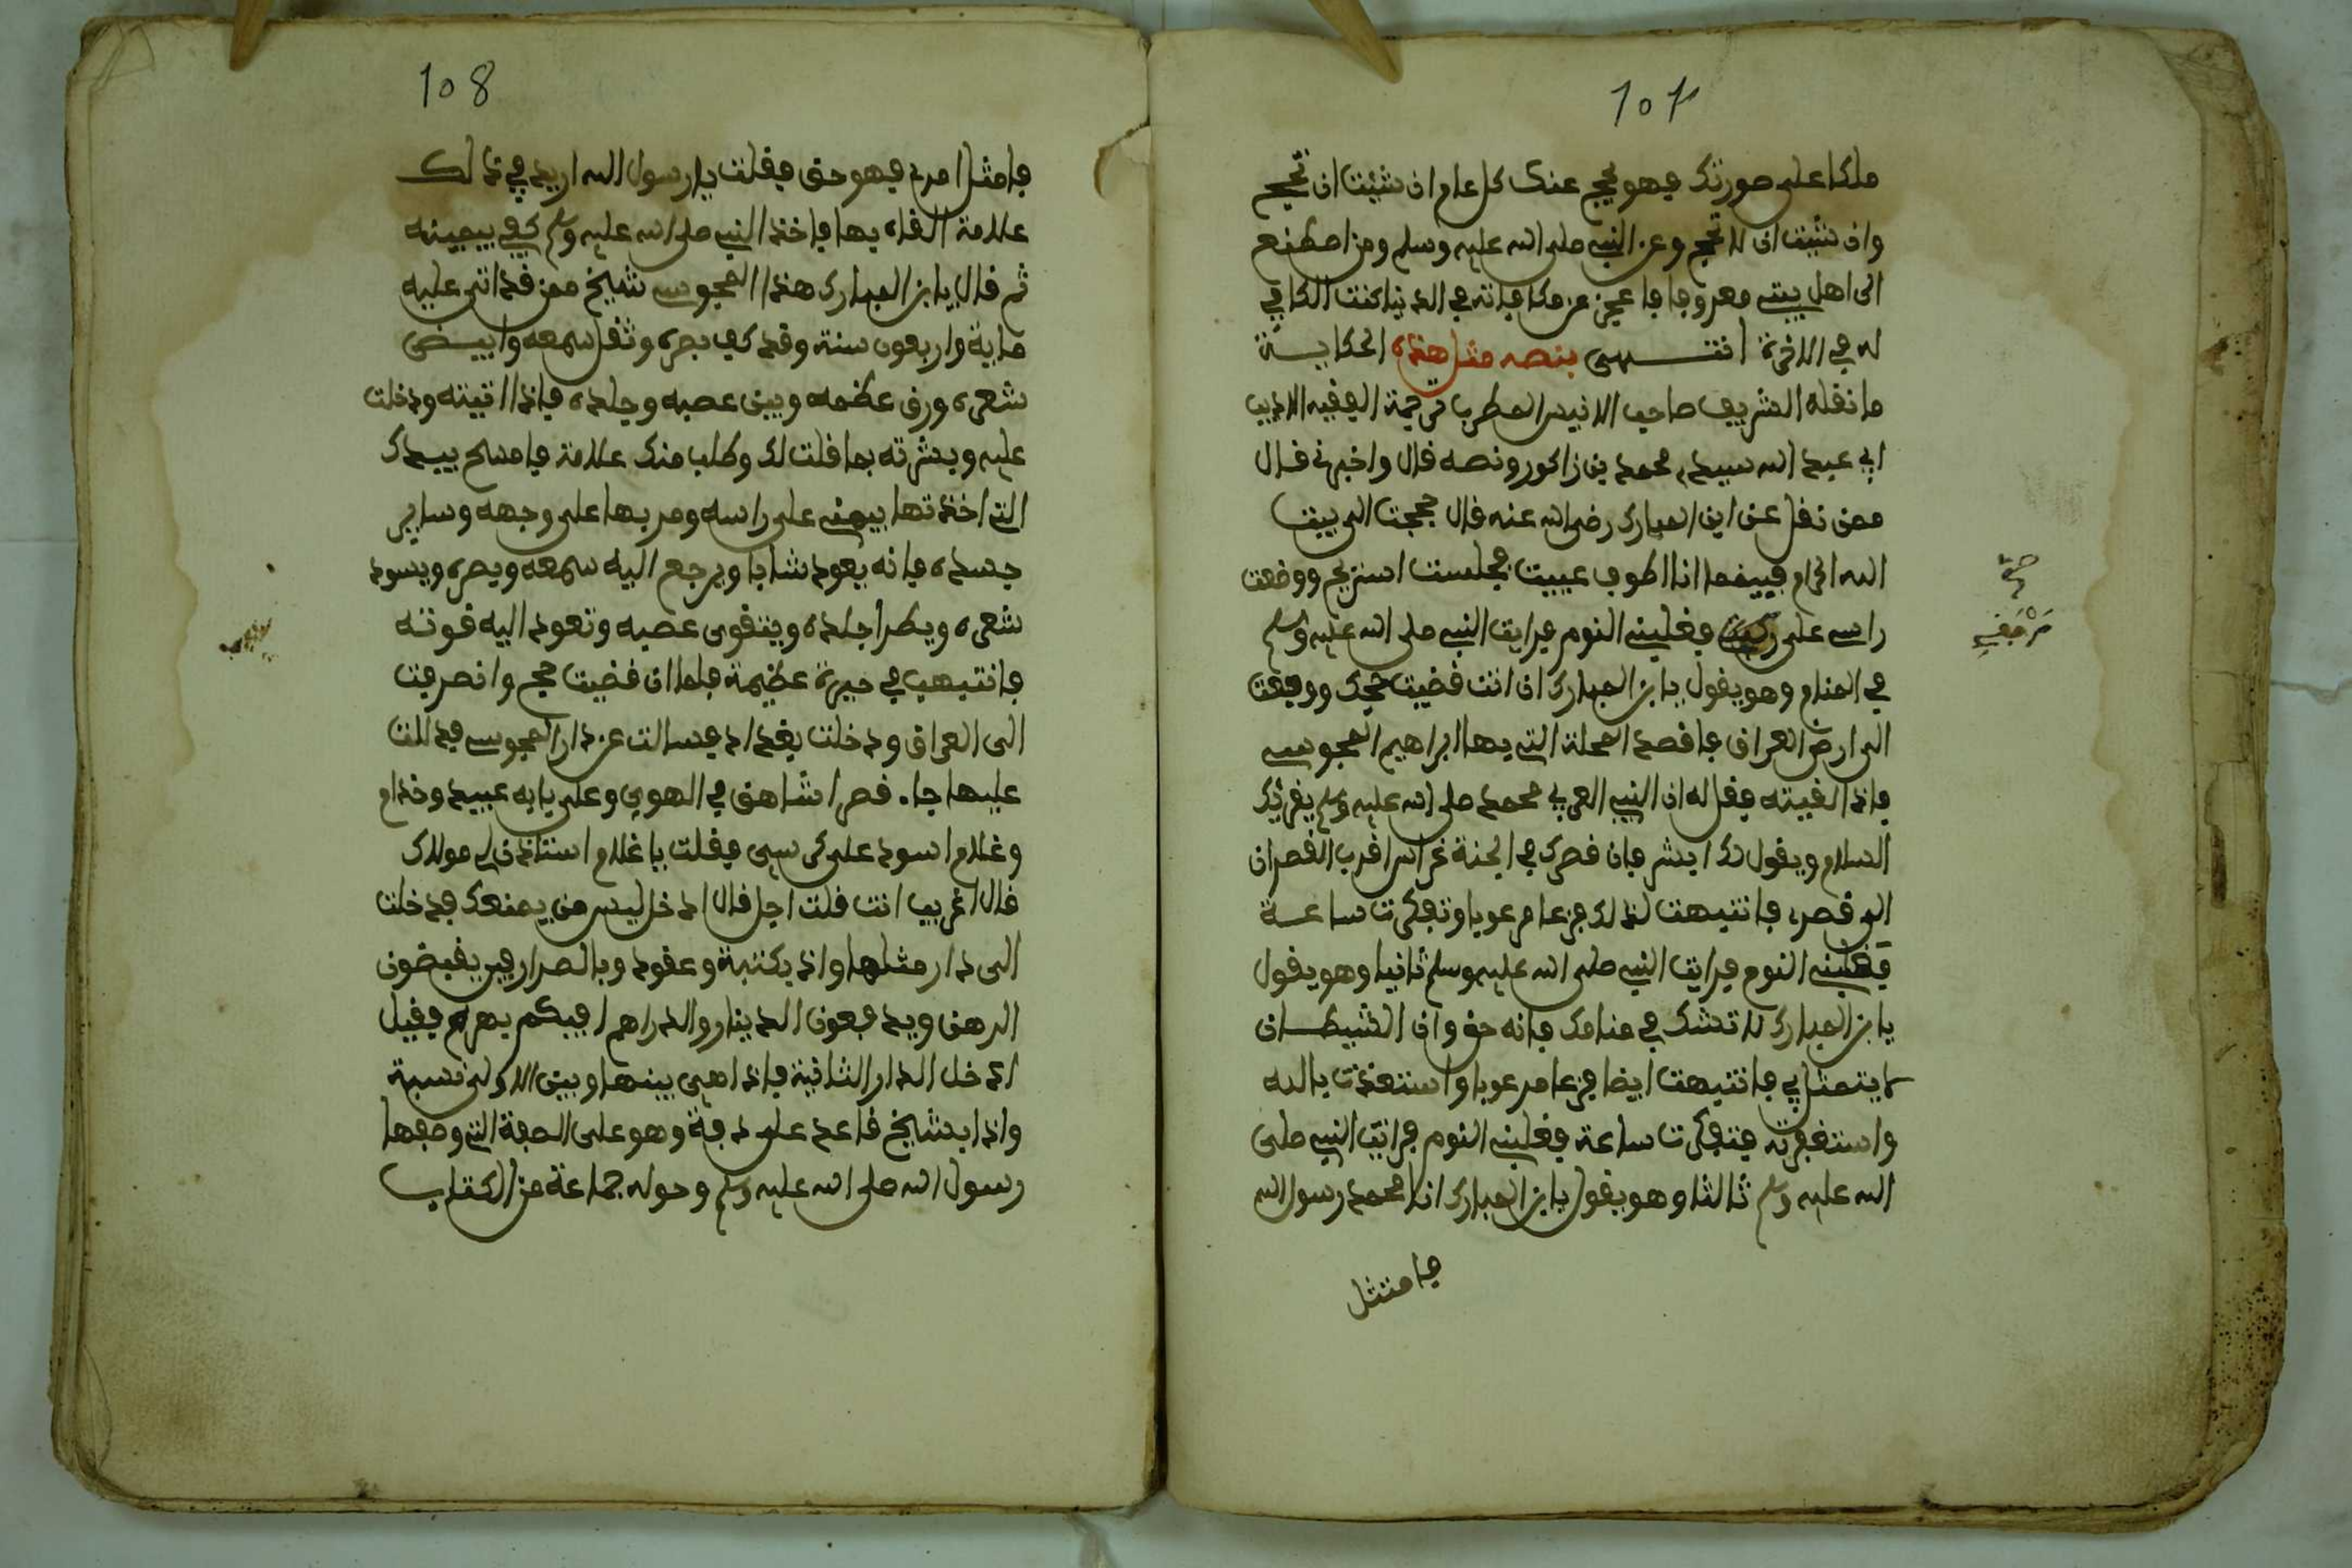 107
ملكا على صورتك فهو يحج عنك كل عام ان شئت ان تحج
وان شئت ان لا تحج وعن النبي صلى الله عليه وسلم ومن اصطنع
الى اهل بيتي معروفا فا عجز عن مكافاته في الدنيا كنت المكافي
له في الاخرة انتــهى بنصه مثل هذه الحكايـة
ما نقله الشريف صاحب الانيس المطرب في ترجمة الفقيه الاديب
ابي عبد الله سيدي محمد بن زاكور ونصه قال واخبرني قال
ممن نقل عن ابن المبارك رضي الله عنه قال حججت الى بيت
الله الحرام فبينما انا اطوف عييت فجلست استريح ووضعت
راسي على فغلبني النوم فرايت النبي صلى الله عليه وسلم
صح
مرفقي
في المنام وهو يقول يا بن المبارك ان انت قضيت حجك ووقفت
الى ارض العراق فاقصد المحلة التي بها ابراهيم المجوسي
فاذا لقيته فقل له ان النبي العربي محمد صلى الله عليه وسلم يقرئك
السلام ويقول لك ابشر فان قصرك في الجنة غدا اقرب القصران
الى قصري فانتبهت لذلك فزعا مرعوبا وتفكرت ساعــة
فغلبني النوم فرايت النبي صلى الله عليه وسلم ثانيا وهو يقول
يا بن المبارك لا تشك في منامك فانه حق وان الشيطــان
لا يتمثل بي فانتبهت ايضا فزعا مرعوبا واستعذت بالله
واستغفرته فتفكرت ساعة فغلبني النوم فرايت النبي صلى
الله عليه وسلم ثالثا وهو يقول يا بن المبارك انا محمد رسول الله
فامتثل
108
فامتثل امري فهو حق فقلت يا رسول الله اريد في ذالك
علامة القاه بها فاخذ النبي صلى الله عليه وسلم كفي بيمينه
ثم قال يا بن المبارك هذا المجوسي شيخ ممن قد اتى عليه
ماية واربعون سنة وقد كف بصره وثقل سمعه وابيــض
شعره ورق عظمه وبين عصبه وجلده فاذا اتيته ودخلت
عليه وبشرته بما قلت لك وطلب منك علامة فامسح بيدك
التي اخذتها بيميني على راسه ومر بها على وجهه وساير
جسده فانه يعود شابا ويرجع اليه سمعه وبصره ويسود
شعره ويطرا جلده ويتقوى عصبه وتعود اليه قوتـه
فانتبهت في حيرة عظيمة فلما ان قضيت حجي وانصرفت
الى العراق ودخلت بغداد فسالت عن دار المجوسي فدللت
عليها جاء قصرا شاهق في الهوى وعلى بابه عبيد وخدام
وغلام اسود على كرسي فقلت يا غلام استاذن لي مولاك
قال اغريب انت قلت اجل قال ادخل ليس من يمنعك فدخلت
الى دار مثلها واذ بكتبة وعقود وبالصرارفين يقبضون
الرهن ويدفعون الدينار والدراهم افيكم بهرام فقيل
ادخل الدار الثانية فاذا هي بينها وبين الاولى نسبة
واذا بشيخ قاعد على دفة وهو على الصفة التي وصفها
رسول الله صلى الله عليه وسلم وحوله جماعة من الكتاب